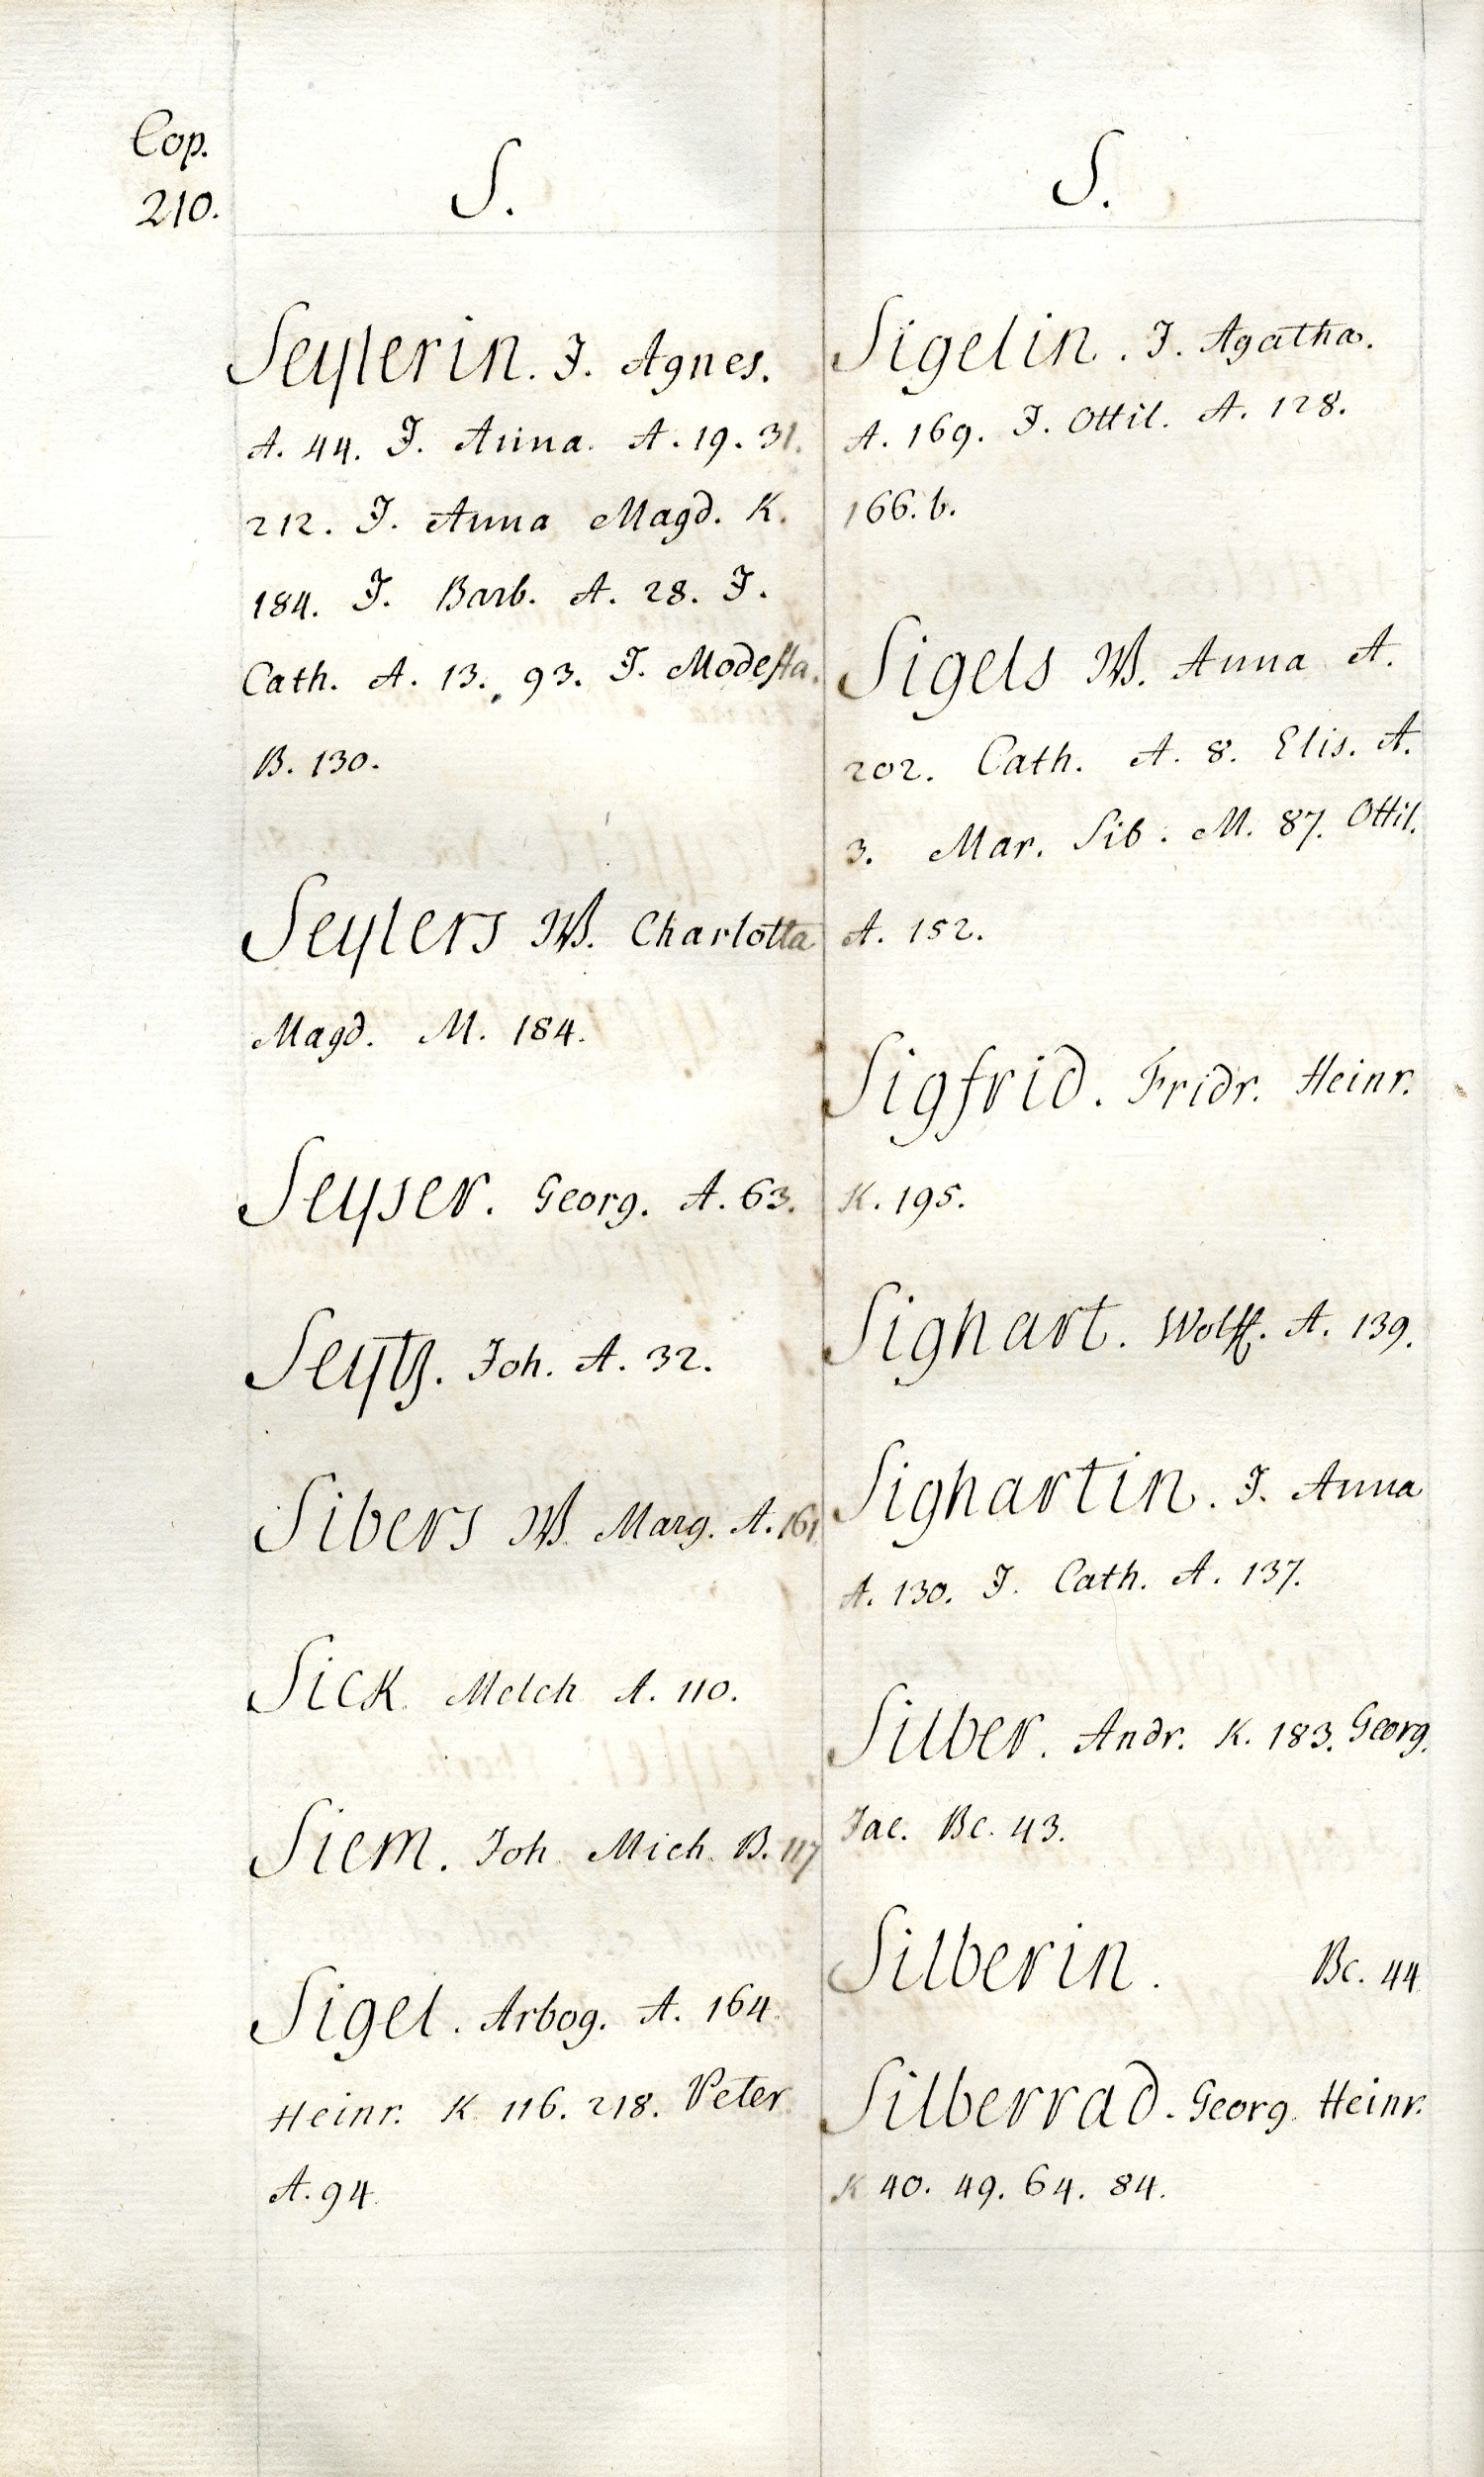 Cop.
210.
S.
Seylerin. J. Agnes.
A. 44. J. Anna. A. 19. 31.
212. J. Anna Magd. K.
184. J. Barb. A. 28. J.
Cath. A. 13. 93. J. Modesta.
B. 130.
Seylers W. Charlotta
Magd. M. 184.
Seyser. Georg. A. 63.
Seytz. Joh. A. 32.
Sibers W. Marg. A. 161.
Sick. Melch A. 110.
Siem. Joh. Mich. B. 117
Sigel. Arbog. A. 164.
Heinr. K 116. 218. Peter
A. 94.
S.
Sigelin. J. Agatha.
A. 169. J. Ottil. A. 128.
166. b.
Sigels W. Anna A.
202. Cath. A. 8. Elis. A.
3. Mar. Sib. M. 87. Ottil.
A. 152.
Sigfrid. Fridr. Heinr.
K. 195.
Sighart. Wolff. A. 139.
Sighartin. J. Anna
A. 130. J. Cath. A. 137.
Silber. Andr. K. 183. Georg.
Jac. Bc. 43.
Silberin. Bc. 44
Silberrad. Georg. Heinr.
K 40. 49. 64. 84.